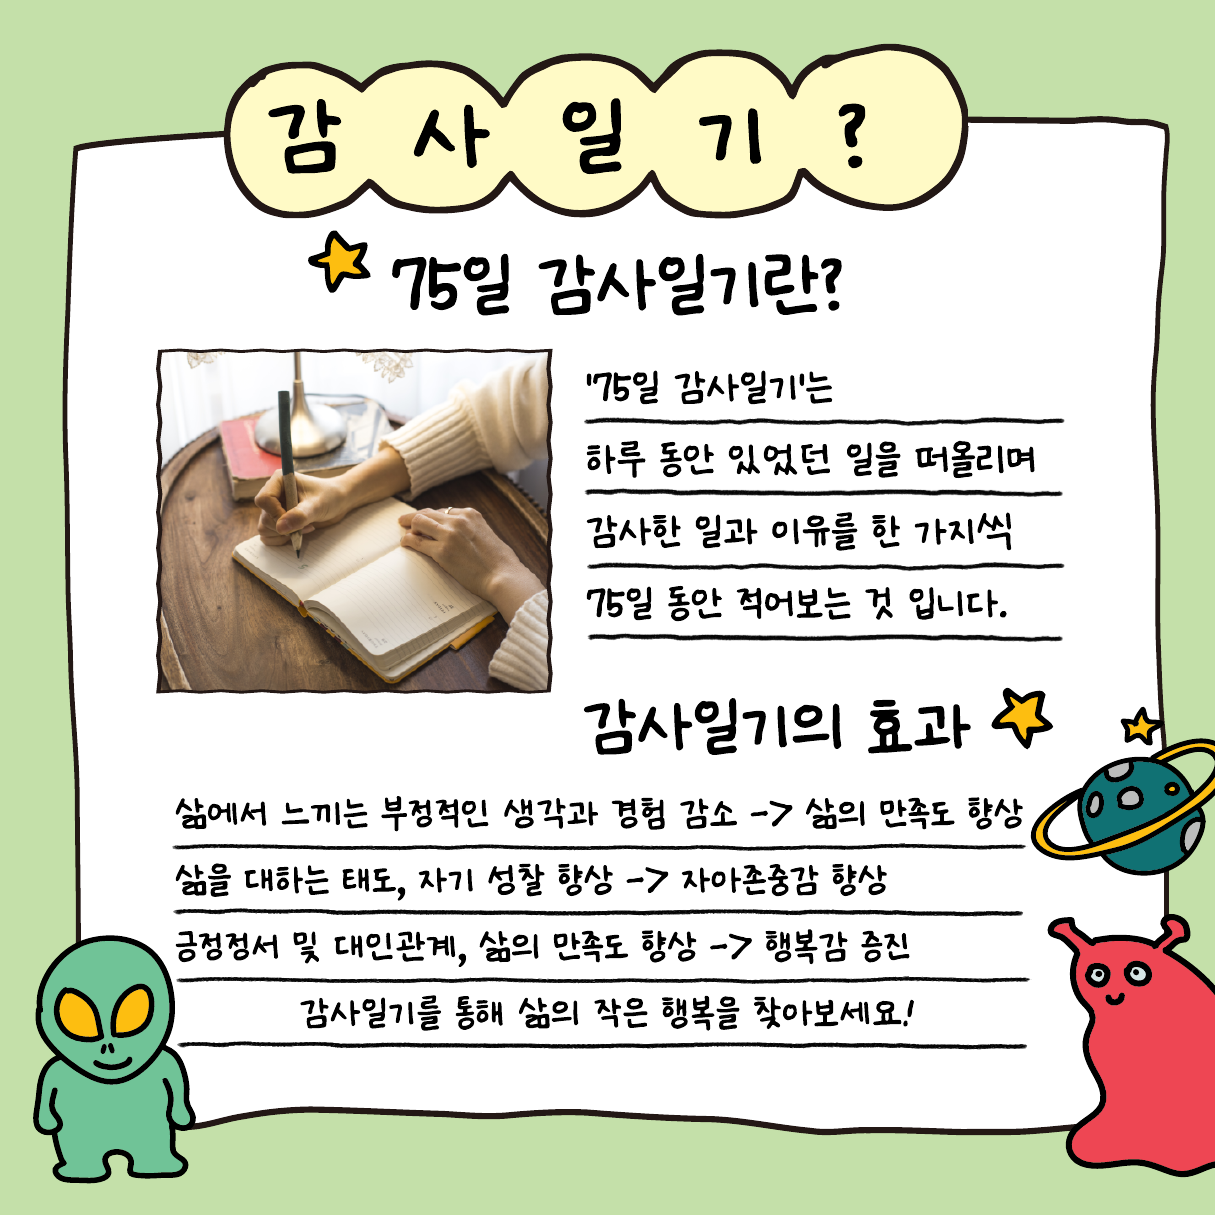 감사일기?
75일 감사일기란?
'75일 감사일기'는
하루 동안 있었던 일을 떠올리며
감사한 일과 이유를 한 가지씩
75일 동안 적어보는 것 입니다.
감사일기의 효과
삶에서 느끼는 부정적인 생각과 경험 감소 -> 삶의 만족도 향상
삶을 대하는 태도, 자기 성찰 향상 -> 자아존중감 향상
긍정정서 및 대인관계, 삶의 만족도 향상 -> 행복감 증진
감사일기를 통해 삶의 작은 행복을 찾아보세요!